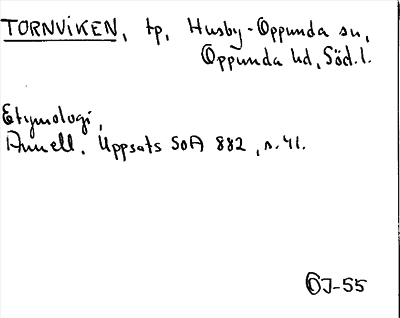 TORNVIKEN, tp, Husby-Oppunda sn,
Oppunda hd, Söd.l.
Etymologi,
Annell, Uppsats SOA 882, s.41.
OJ-55